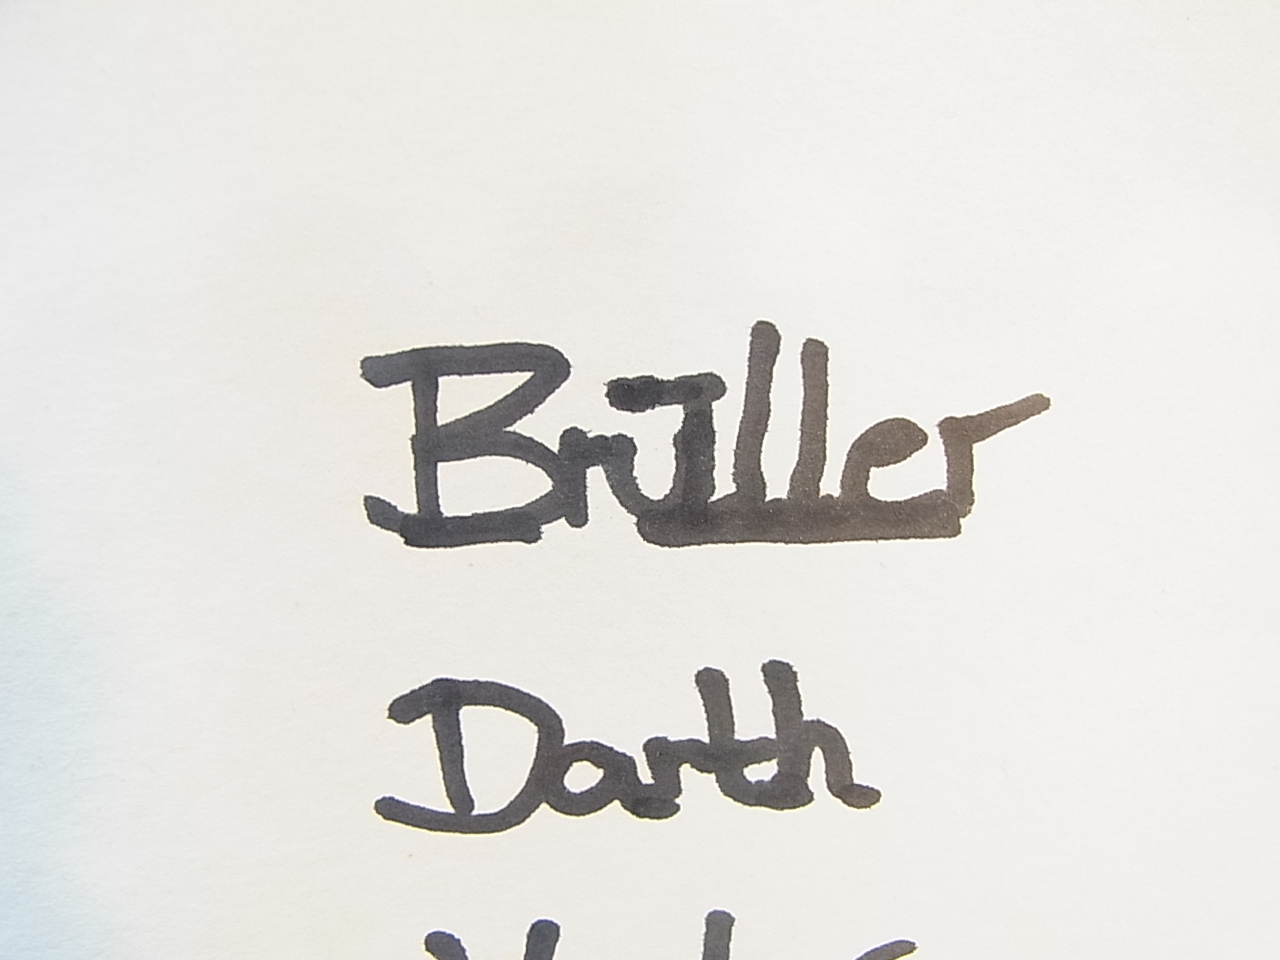 Brüller
Darth